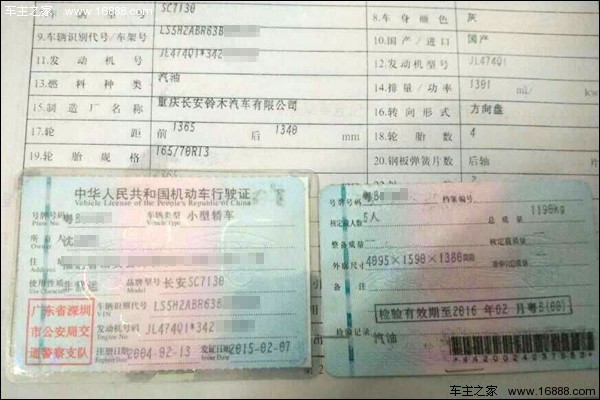 车主之家 www.16888.com
SC7130
8.车身颜色 灰
9.车辆识别代号/车架号 LS5H2ABR63B
10.国产/进口 国产
11.发动机号 JL474Q1*342
12.发动机型号 JL474Q1
13.燃料种类 汽油
14.排量/功率 1301 mL/
15.制造厂名称 重庆长安铃木汽车有限公司
16.转向形式 方向盘
17.轮距 前 1365 后 1340 mm
18.轮胎数 4
19.轮胎规格 165/70R13
20.钢板弹簧片数 后轴
中华人民共和国机动车行驶证
Vehicle License of the People's Republic of China
号牌号码 粤B
Plate No.
车辆类型 小型轿车
Vehicle Type
所有人 沈
Owner
住
使用性质 非营运
品牌型号 长安SC7130
车辆识别代号 LS5H2ABR63B
VIN
发动机号码 JL474Q1*342
Engine No.
注册日期 2004-02-13
发证日期 2015-02-07
广东省深圳
市公安局交
通警察支队
号牌号码 粤B
档案编号
核定载人数 5人
总质量 1190kg
整备质量
核定载质量
外廓尺寸 4095×1590×1380
检验有效期至2016年02月粤B(00)
检验记录
汽油
车主之家 www.16888.com